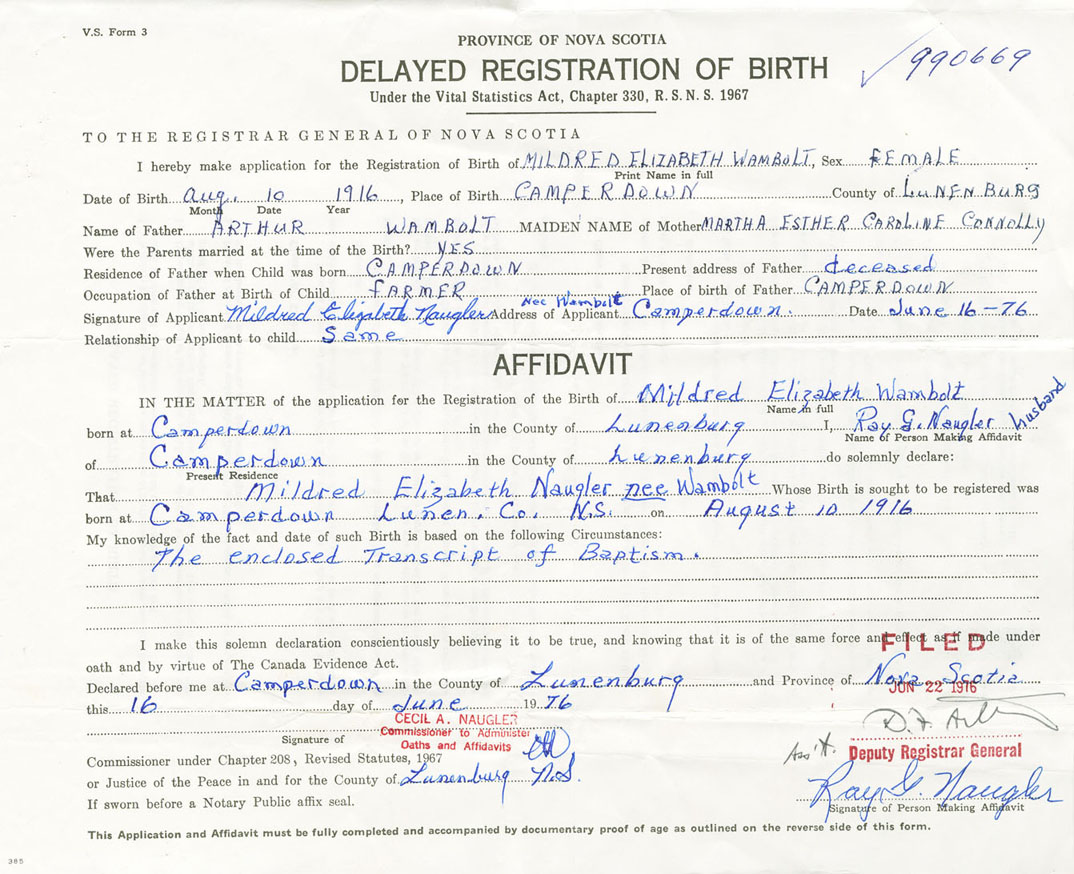 V.S. Form 3
PROVINCE OF NOVA SCOTIA
990669
DELAYED REGISTRATION OF BIRTH
Under the Vital Statistics Act, Chapter 330, R.S.N.S. 1967
TO THE REGISTRAR GENERAL OF NOVA SCOTIA
I hereby make application for the Registration of Birth of MILDRED ELIZABETH WAMBOLT, Sex FEMALE
Print Name in full
Date of Birth Aug. 10 1916, Place of Birth CAMPERDOWN County of LUNENBURG
Month Date Year
Name of Father ARTHUR WAMBOLT MAIDEN NAME of Mother MARTHA ESTHER CAROLINE CONNOLLY
Were the Parents married at the time of the Birth? YES
Residence of Father when Child was born CAMPERDOWN Present address of Father deceased
Occupation of Father at Birth of Child FARMER Place of birth of Father CAMPERDOWN
nee Wambolt
Signature of Applicant Mildred Elizabeth Naugler Address of Applicant Camperdown. Date June 16-76
Relationship of Applicant to child Same
AFFIDAVIT
IN THE MATTER of the application for the Registration of the Birth of Mildred Elizabeth Wambolt
Name in full
born at Camperdown in the County of Lunenburg I, Ray G. Naugler husband
Name of Person Making Affidavit
of Camperdown in the County of Lunenburg do solemnly declare:
Present Residence
That Mildred Elizabeth Naugler nee Wambolt Whose Birth is sought to be registered was
born at Camperdown Lunen. Co. N.S. on August 10 1916
My knowledge of the fact and date of such Birth is based on the following Circumstances:
The enclosed Transcript of Baptism.
I make this solemn declaration conscientiously believing it to be true, and knowing that it is of the same force and effect as if made under
FILED
oath and by virtue of The Canada Evidence Act.
Declared before me at Camperdown in the County of Lunenburg and Province of Nova Scotia
JUN 22 1976
this 16 day of June 1976
CECIL A. NAUGLER
Commissioner to Administer
Oaths and Affidavits
Signature of
Ass't. Deputy Registrar General
Commissioner under Chapter 208, Revised Statutes, 1967
or Justice of the Peace in and for the County of Lunenburg N.S.
Ray G. Naugler
If sworn before a Notary Public affix seal.
Signature of Person Making Affidavit
This Application and Affidavit must be fully completed and accompanied by documentary proof of age as outlined on the reverse side of this form.
385